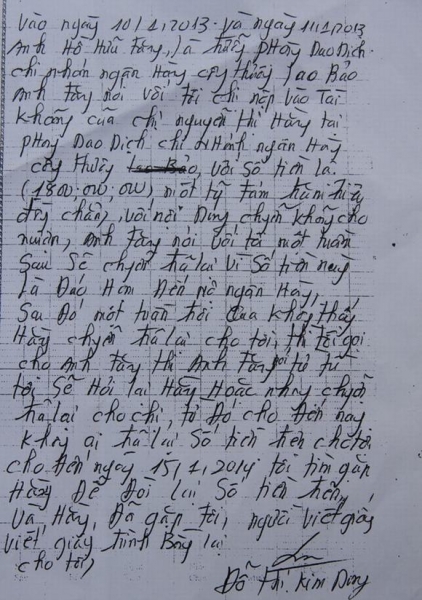 Vào ngày 10/1/2013 và ngày 11/1/2013
Anh Hồ Hữu Tăng, là trưởng phòng Dao Dịch
chi nhánh ngân Hàng công thương Lao Bảo
Anh tăng nói với tôi chị nộp vào Tài
khoảng của chị nguyễn thị Hằng tại
phòng Dao Dịch chi nhánh ngân Hàng
công thương Lao Bảo, với Số tiền là
(1800.000.000) một tỷ tám trăm triệu
đồng chẵn, với nội Dung chuyển khoảng cho
mượn, Anh tăng nói với tôi một tuần
Sau Sẽ chuyển trả lại vì Số tiền này
là Đáo Hạn Đến nợ ngân Hàng,
Sau Đó một tuần tôi không thấy
Hằng chuyển trả lại cho tôi, thì tôi gọi
cho Anh tăng thì Anh tăng nói từ từ
tôi Sẽ Hỏi lại Hằng Hoặc nhờ chuyển
trả lại cho chị, từ Đó cho Đến nay
không ai trả lại Số tiền trên cho tôi
cho Đến ngày 15/1/2014 tôi tìm gặp
Hằng Để Đòi lại Số tiền trên,
Và Hằng, Đã gặp tôi, người viết giấy
viết giấy trình Bày lại
cho tôi,
Đỗ Thị Kim Dung